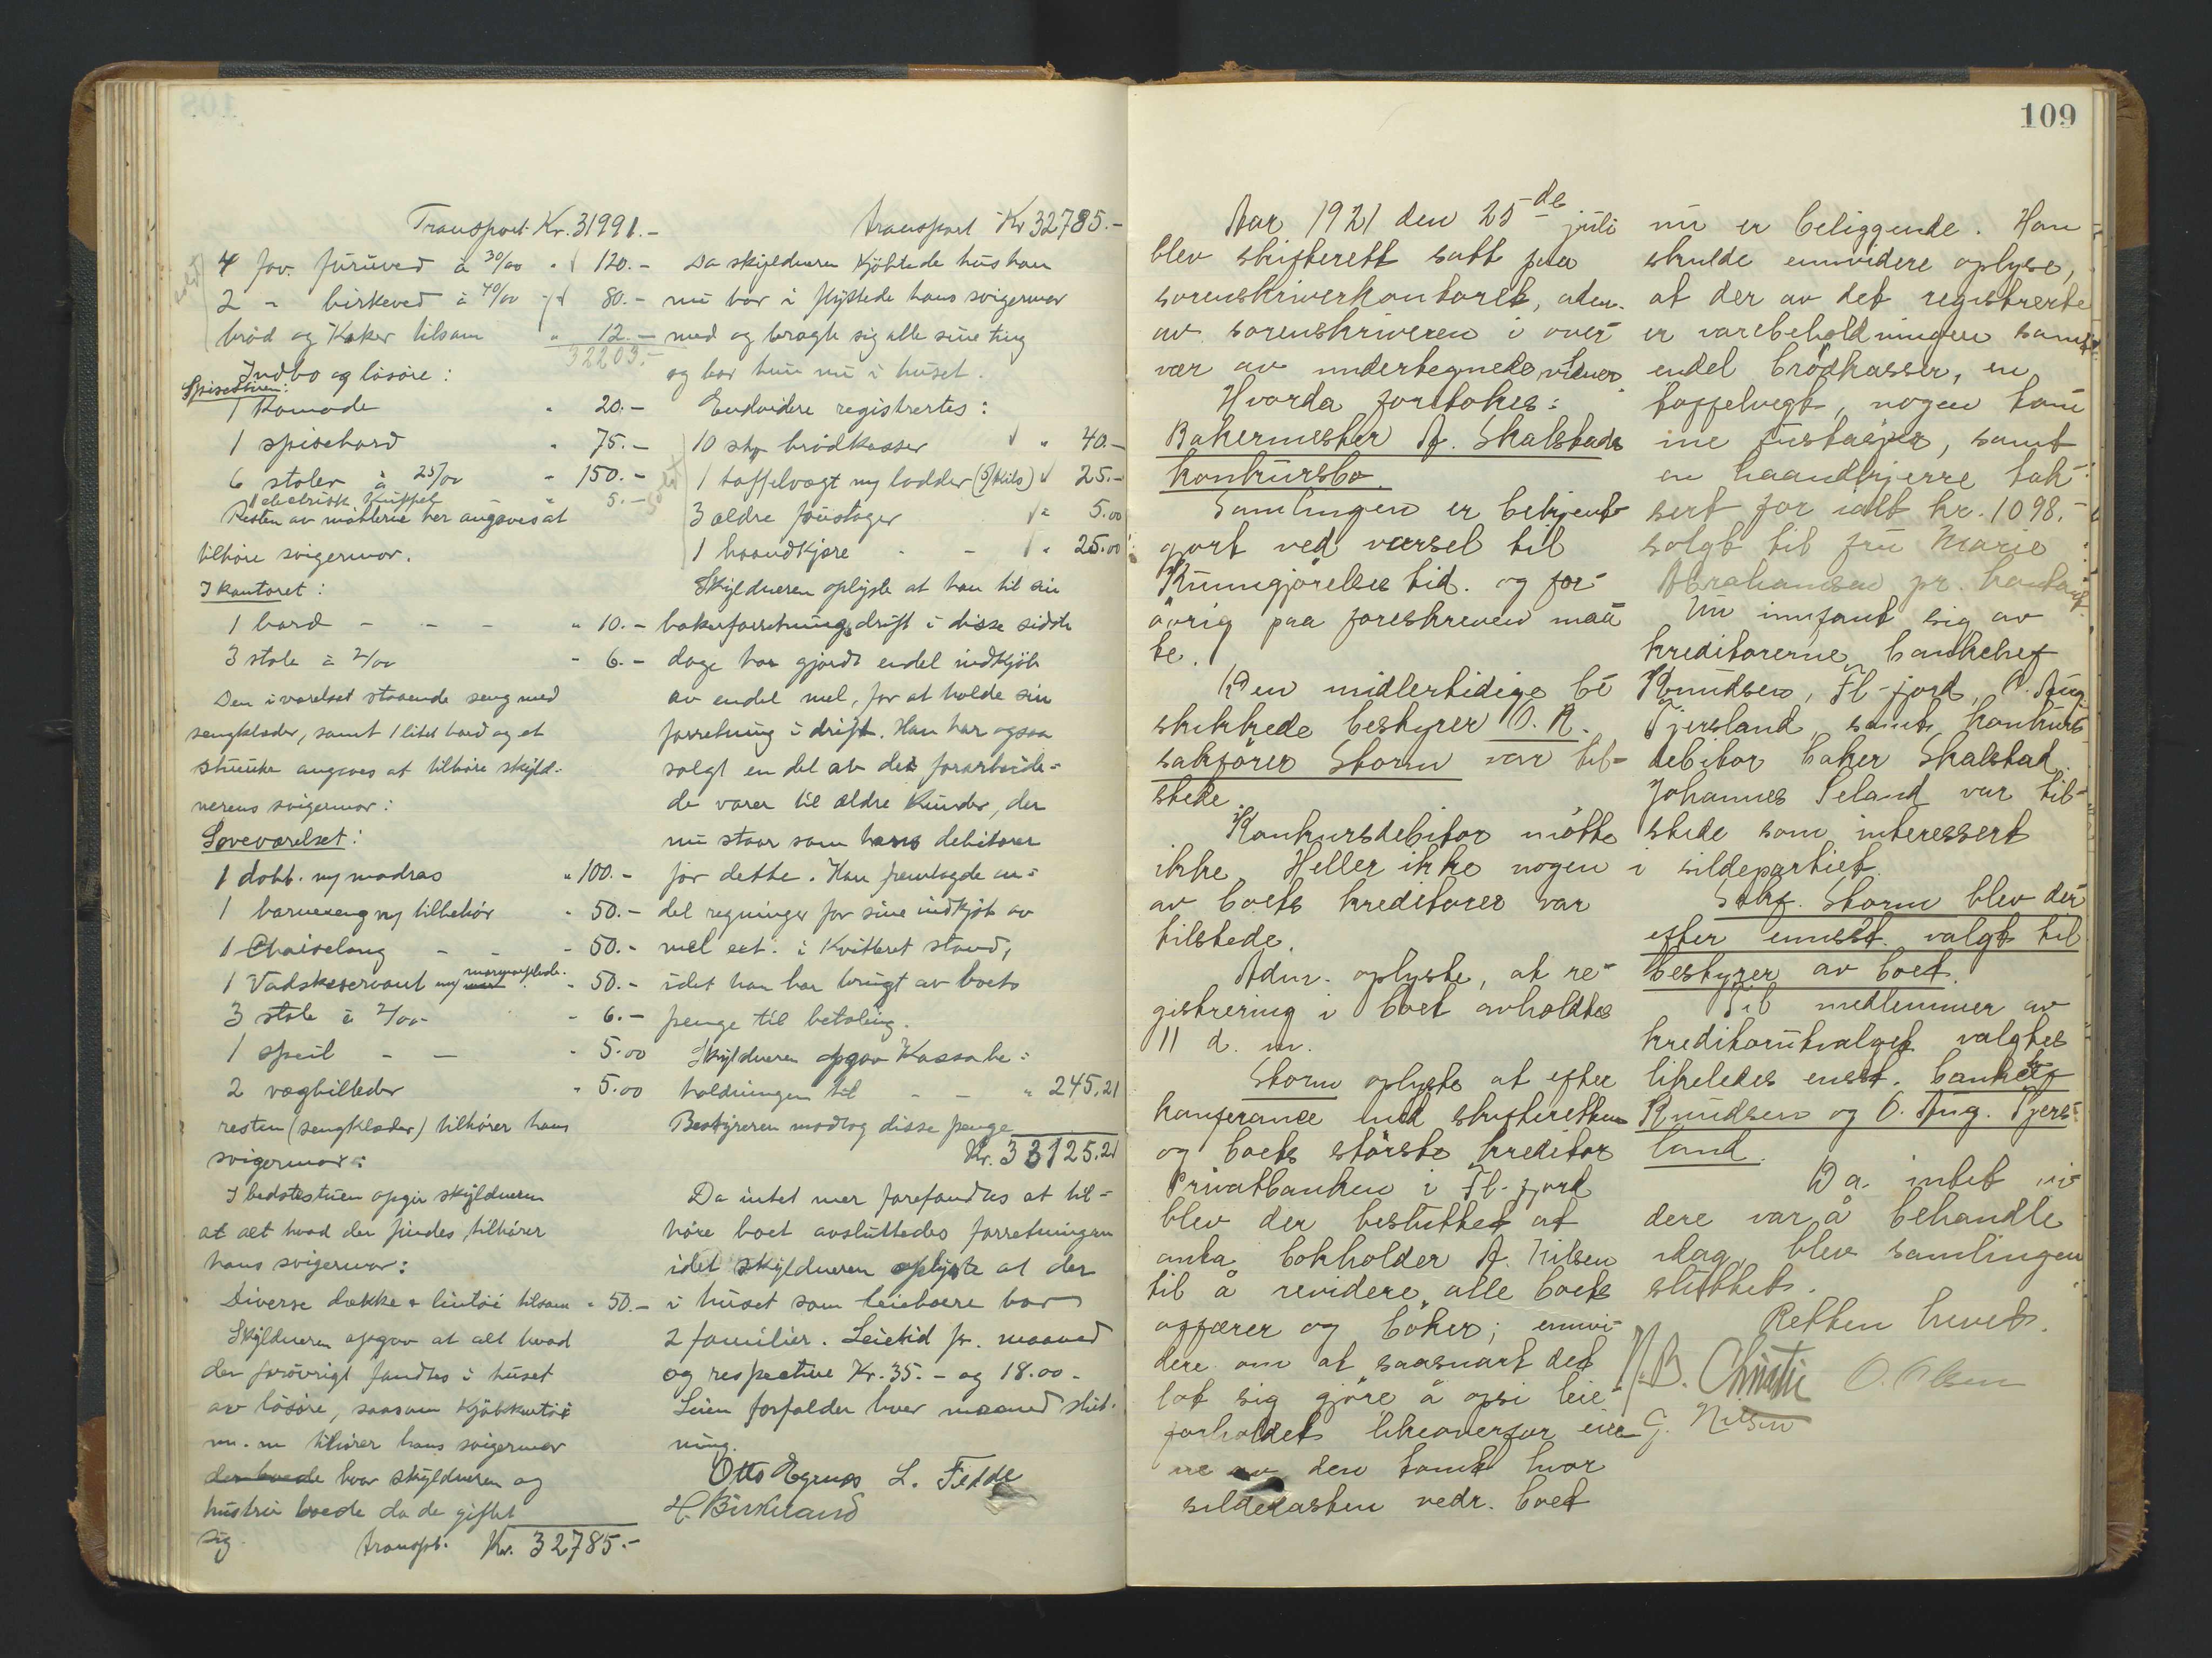 Transport Kr. 31991.-
4 fav. furuved à 30/00 " 120.-
2 - birkeved à 40/00 - 80.-
brød og Kaker tilsam " 12.-
32203.-
Indbo og løsøre:
Spisestuen:
1 Komode " 20.-
1 spisebord " 75.-
6 stoler à 25/00 " 150.-
1 electrisk Kuppel - " 5.-
Resten av møblerne her angaves at
tilhøre svigermor.
I kontoret:
1 bord - - - " 10.-
3 stole à 2/00 " 6.-
Den i værelset staaende seng med
sengklæder, samt 1 litet bord og et
angives at tilhøre skyld-
nerens svigermor:
Soveværelset:
1 dobb. ny madras " 100.-
1 barneseng m/ tilbehør " 50.-
1 Chaiselong - - " 50.-
1 Vadskeservant m/ marmorplade. " 50.-
3 stole à 2/00 - " 6.-
1 speil - - " 5.00
2 vægbilleder " 5.00
resten (sengklæder) tilhører hans
svigermor:
I bedstestuen opgir skyldneren
at alt hvad der findes, tilhører
hans svigermor:
Diverse dække & lintøi tilsam " 50.-
Skyldneren opgav at alt hvad
der forøvrigt fandtes i huset
av løsøre, saasom Kjøkkentøi
m. m tilhører hans svigermor
der boede hvor skyldneren og
hustru boede da de giftet
sig.
transpt. Kr. 32785.-
transport Kr 32785.-
Da skyldneren Kjøbtede hus han
nu bor i flyttede hans svigermor
med og bragte sig alle sine ting
og bor hun nu i huset.
Endvidere registrertes:
10 stk brødkasser " 40.-
1 taffelvægt m/ lodder (5/Kilo) 25.-
3 ældre foustager " 5.00
1 haandkjære - - " 25.00
Skyldneren oplyste at han til sin
bakerforretnings drift i disse sidste
dage har gjordt endel indkjøb
av endel mel, for at holde sin
forretning i drift. Han har ogsaa
solgt en del av de forarbeide-
de varer til ældre Kunder, der
nu staar som hans debitorer
for dette. Han fremlagde en-
del regninger for sine indkjøb av
mel ect. i Kvitteret stand,
idet han har brugt av boets
penge til betaling.
Skyldneren opgav Kassabe-
holdningen til - - " 245,21
Bestyreren modtog disse penge
Kr. 33125.21
Da intet mer forefandtes at til-
høre boet avsluttedes forretningen
idet skyldneren oplyste at der
i huset som leieboere bor
2 familier. Leietid pr. maaned
og respective Kr. 35.- og 18.00.-
Leien forfalder hver maaned slut-
ning.
Otto Egenes L. Fedde
H. Birkeland
109
Aar 1921 den 25de juli
blev skifterett satt paa
sorenskriverkontoret, adm.
av sorenskriveren i over-
vær av undertegnede vidner.
Hvorda foretokes:
Bakermester A. Skalstads
konkursbo.
Samlingen er bekjent-
gjort ved varsel til
Kunngjørelses tid. og for-
øvrig paa foreskreven maa-
te.
Den midlertidige be-
skikkede bestyrer O. R.
sakfører Storm var til-
stede.
Konkursdebitor møtte
ikke. Heller ikke nogen
av boets kreditorer var
tilstede.
Adm. oplyste, at re-
gistrering i boet avholdtes
11 d. m.
Storm oplyste at efter
konferance med skifteretten
og boets største kreditor
Privatbanken i Fl.fjord
blev der besluttet at
anta bokholder A. Nilsen
til å revidere alle boets
affærer og bøker; ennvi-
dere om at saasnart det
lot sig gjøre å opsi leie-
forholdet likeoverfor eie-
re av den tomt hvor
sildekasten vedr. boet
nu er beliggende. Han
skulde ennvidere oplyse,
at der av det registrerte
er varebeholdningen samt
endel brødkasser, en
taffelvegt, nogen tom
me fustasjer, samt
en haandkjerre tak-
sert for ialt kr. 1098.-
solgt til fru Marie
Abrahamsen pr. kontant.
Nu innfant sig av
kreditorerne bankchef
Knudsen, Fl-fjord, O. Aug.
Tjersland, samt konkurs
debitor baker Skalstad.
Johannes Seland var til-
stede som interessert
i sildepartiet.
Sakf. Storm blev der-
efter ennst. valgt til
bestyrer av boet.
Til medlemmer av
kreditorutvalget valgtes
likeledes enst. bankchef
Knudsen og O. Aug. Tjers-
land.
Da intet vi-
dere var å behandle
idag, blev samlingen
sluttet.
Retten hevet.
N. B. Christie O. Olsen
G. Nilsen